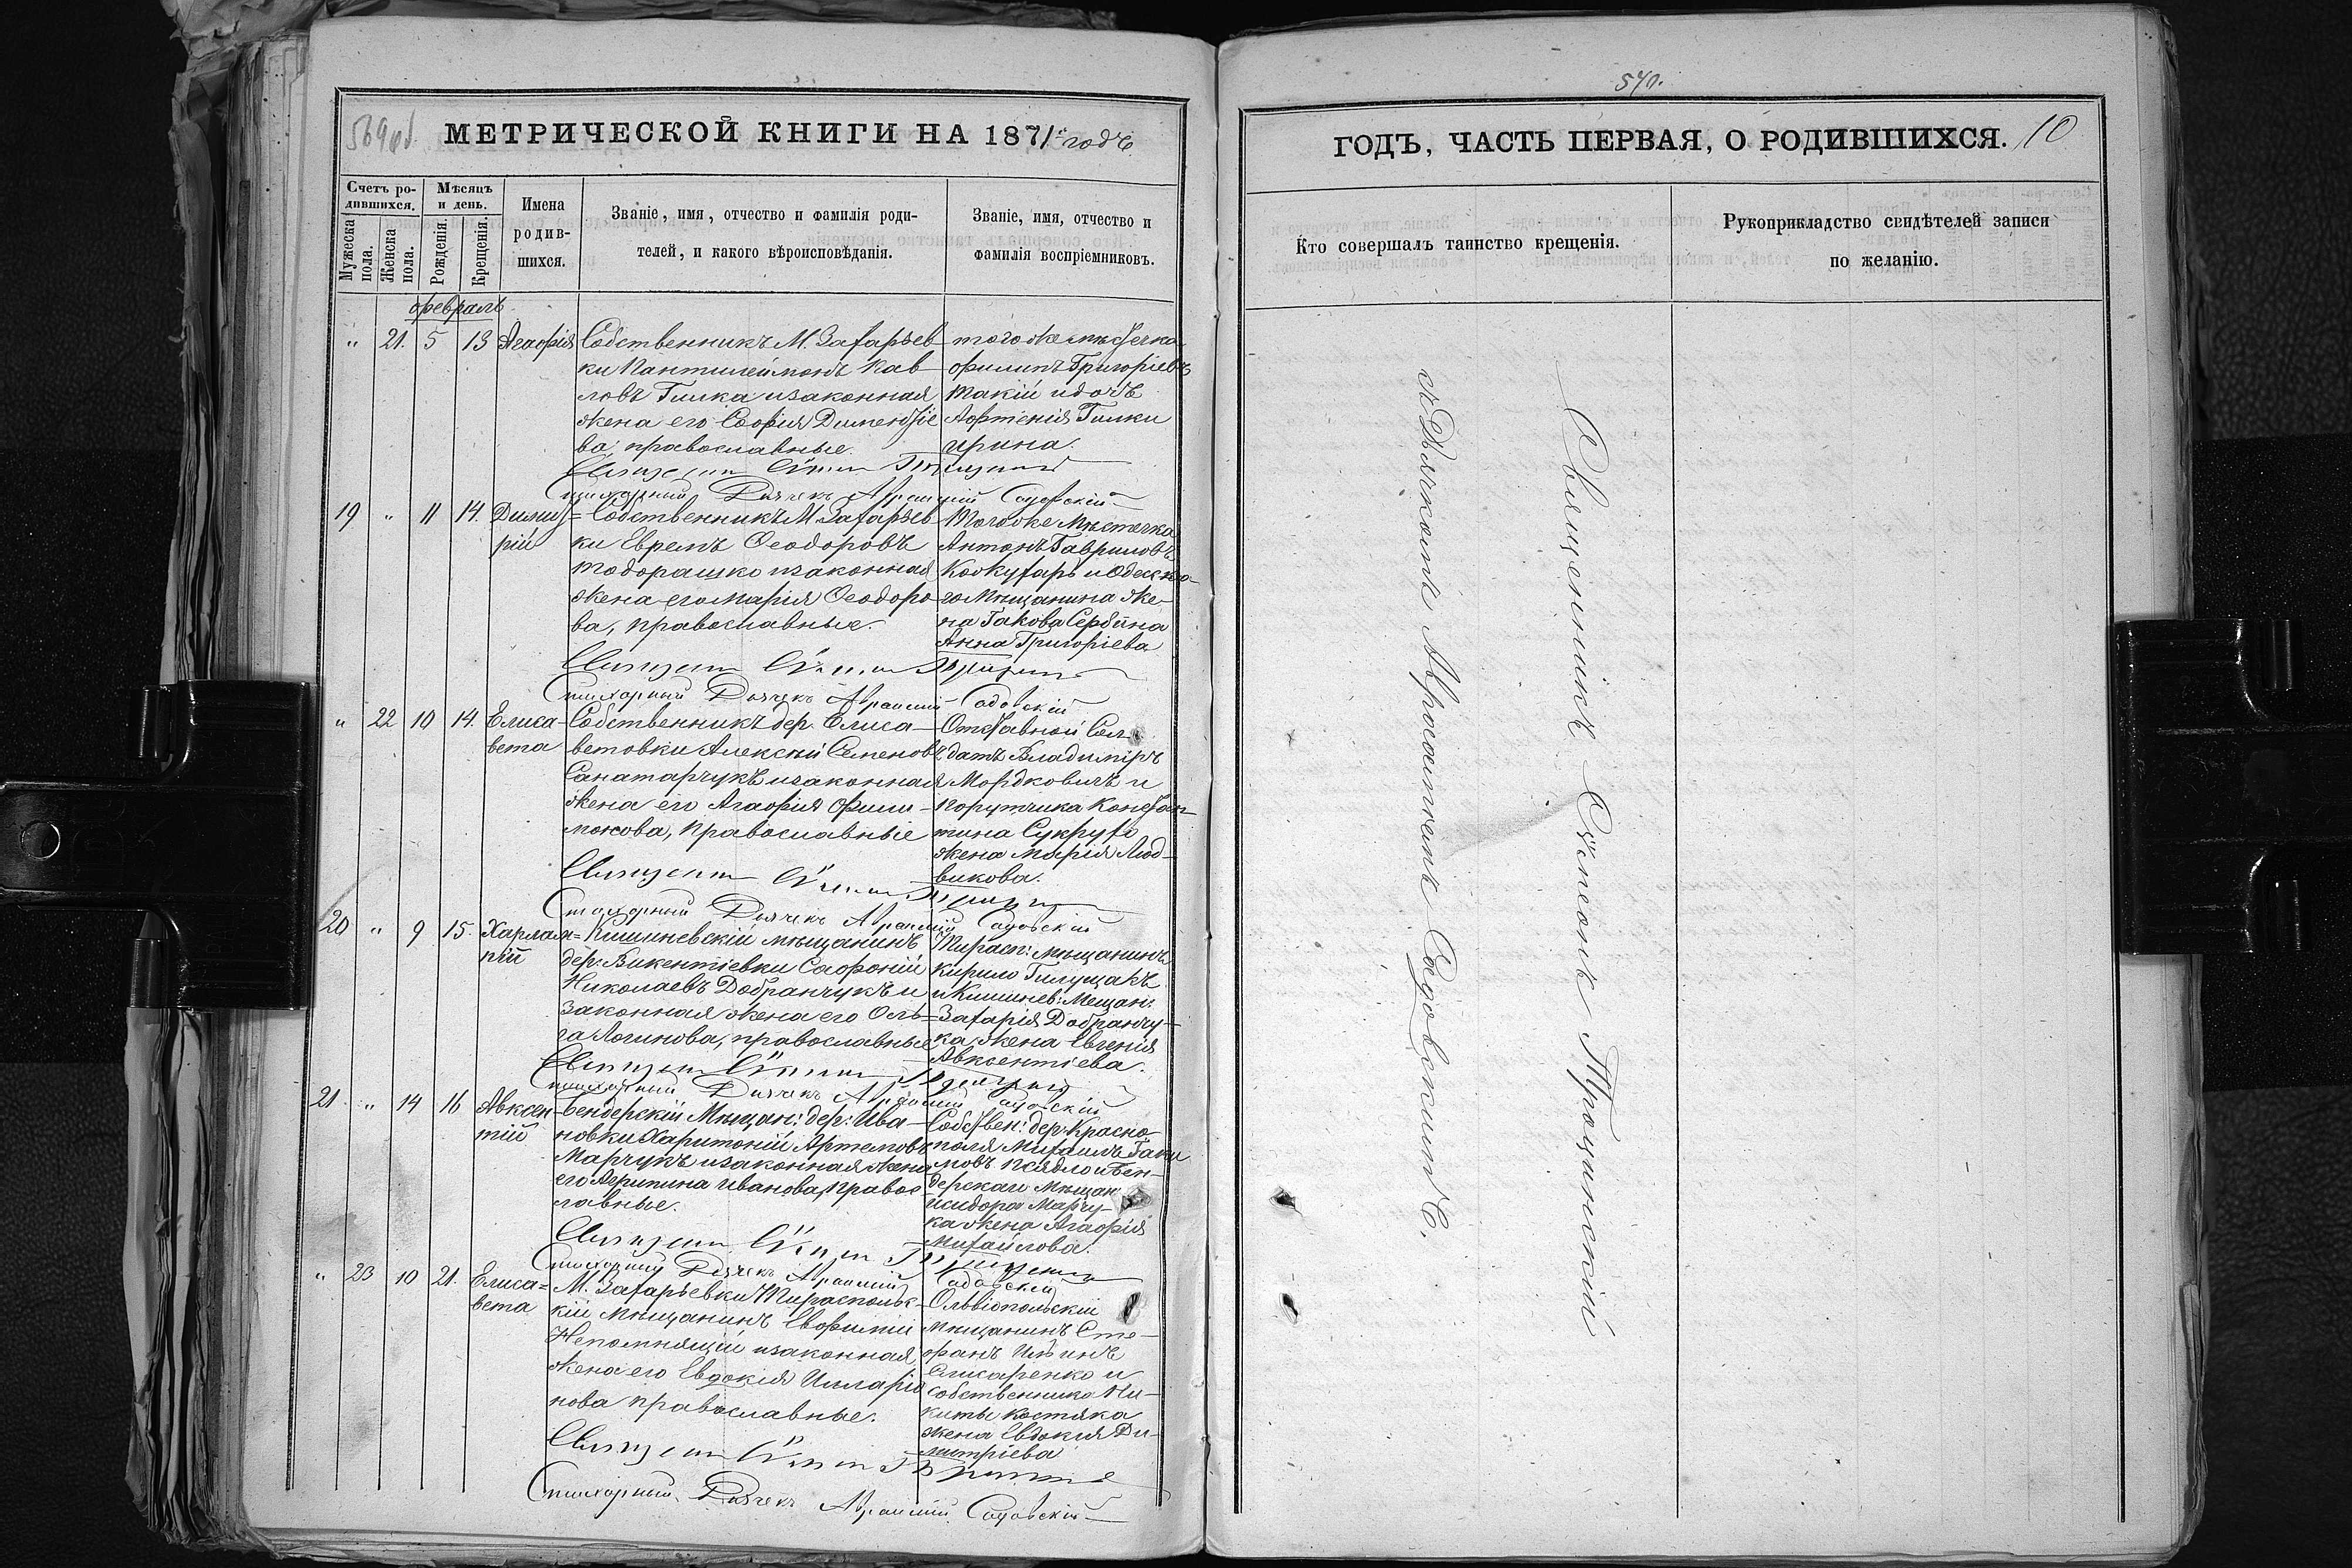 569об.
МЕТРИЧЕСКОЙ КНИГИ НА 1871й годъ
Счетъ ро-
дившихся.
Мужеска
пола.
Женска
пола.
Мѣсяцъ
и день.
Рожденія.
Крещенія.
Имена
родив-
шихся.
Званіе, имя, отчество и фамилія роди-
телей, и какого вѣроисповѣданія.
Званіе, имя, отчество и
фамилія воспріемниковъ.
февраль
" 21. 5 13 Агафія
Собственникъ М. Захарьев-
ки Пантилеймонъ Кав
ловъ Гилка и законная
жена его Софія Диментіе
ва, православные.
того же мѣстечка
Филипъ Григоріевъ
Такій и дочь
Афтенія Гилки
Ирина.
Стихорный Дьячекъ Садовскій
19 " 11 14. Димит=
рій
Собственникъ М. Захарьев-
ки Ефремъ Ѳеодоровъ
Тодорашко и законная
жена его Марія Ѳеодоро-
ва, православные.
Того же Мѣстечка
Антонъ Гавриловъ
и Одесско-
го Мѣщанина же-
на Іакова Сербина
Анна Григоріева
Стихорный Дьячекъ Садовскій
" 22 10 14. Елиса-
вета
Собственникъ дер. Елиса-
ветовки Алексѣй Семеновъ
Санатарчукъ и законная
жена его Агафія Фили-
монова, православные
Отставной Сол
датъ Владиміръ
Мордковичъ и
порутчика Констан-
тина
жена Марія Люд-
викова.
Стихорный Дьячекъ Садовскій
20 " 9 15. Харлам=
пій
Кишиневскій мѣщанинъ
дер: Викентіевки Софоній
Николаевъ Добранчукъ и
законная жена его Оль=
га Логинова, православные
Тирасп: мѣщанинъ
Кирило Гилущакъ
и Кишинев: Мещан:
Захарія Добранчу-
ка жена Евгенія
Авксентіева.
Стихорный Дьячекъ Садовскій
21 " 14 16 Авксен
тій
Бендерскій Мѣщан: дер: Ива-
новки Харитоній Артемовъ
Марчукъ и законная жена
его Агрипина Иванова, правос-
лавные.
Собствен: дер: Красно-
поля Михаилъ
и Бен-
дерскаго Мѣщан
Исидора Марчу-
ка жена Агафія
Михайлова.
Стихорный Дьячекъ Садовскій
" 23 10 21. Елиса=
вета
М. Захарьевки Тираспольс-
кій мѣщанинъ Евфимій
Непомнящій и законная
жена его Евдокія Илларіо
нова православные.
Ольвіопольскій
мѣщанинъ Сте-
фанъ Ильинъ
Слюсаренко и
собственника Ни-
киты Костюка
жена Евдокія Ди-
митріева
Стихорный Дьячекъ Садовскій
570.
ГОДЪ, ЧАСТЬ ПЕРВАЯ, О РОДИВШИХСЯ. 10
Кто совершалъ таинство крещенія.
Рукоприкладство свидѣтелей записи
по желанію.
Священникъ Сѵмеонъ Троцинскій
съ Дьячкомъ Садовскимъ.